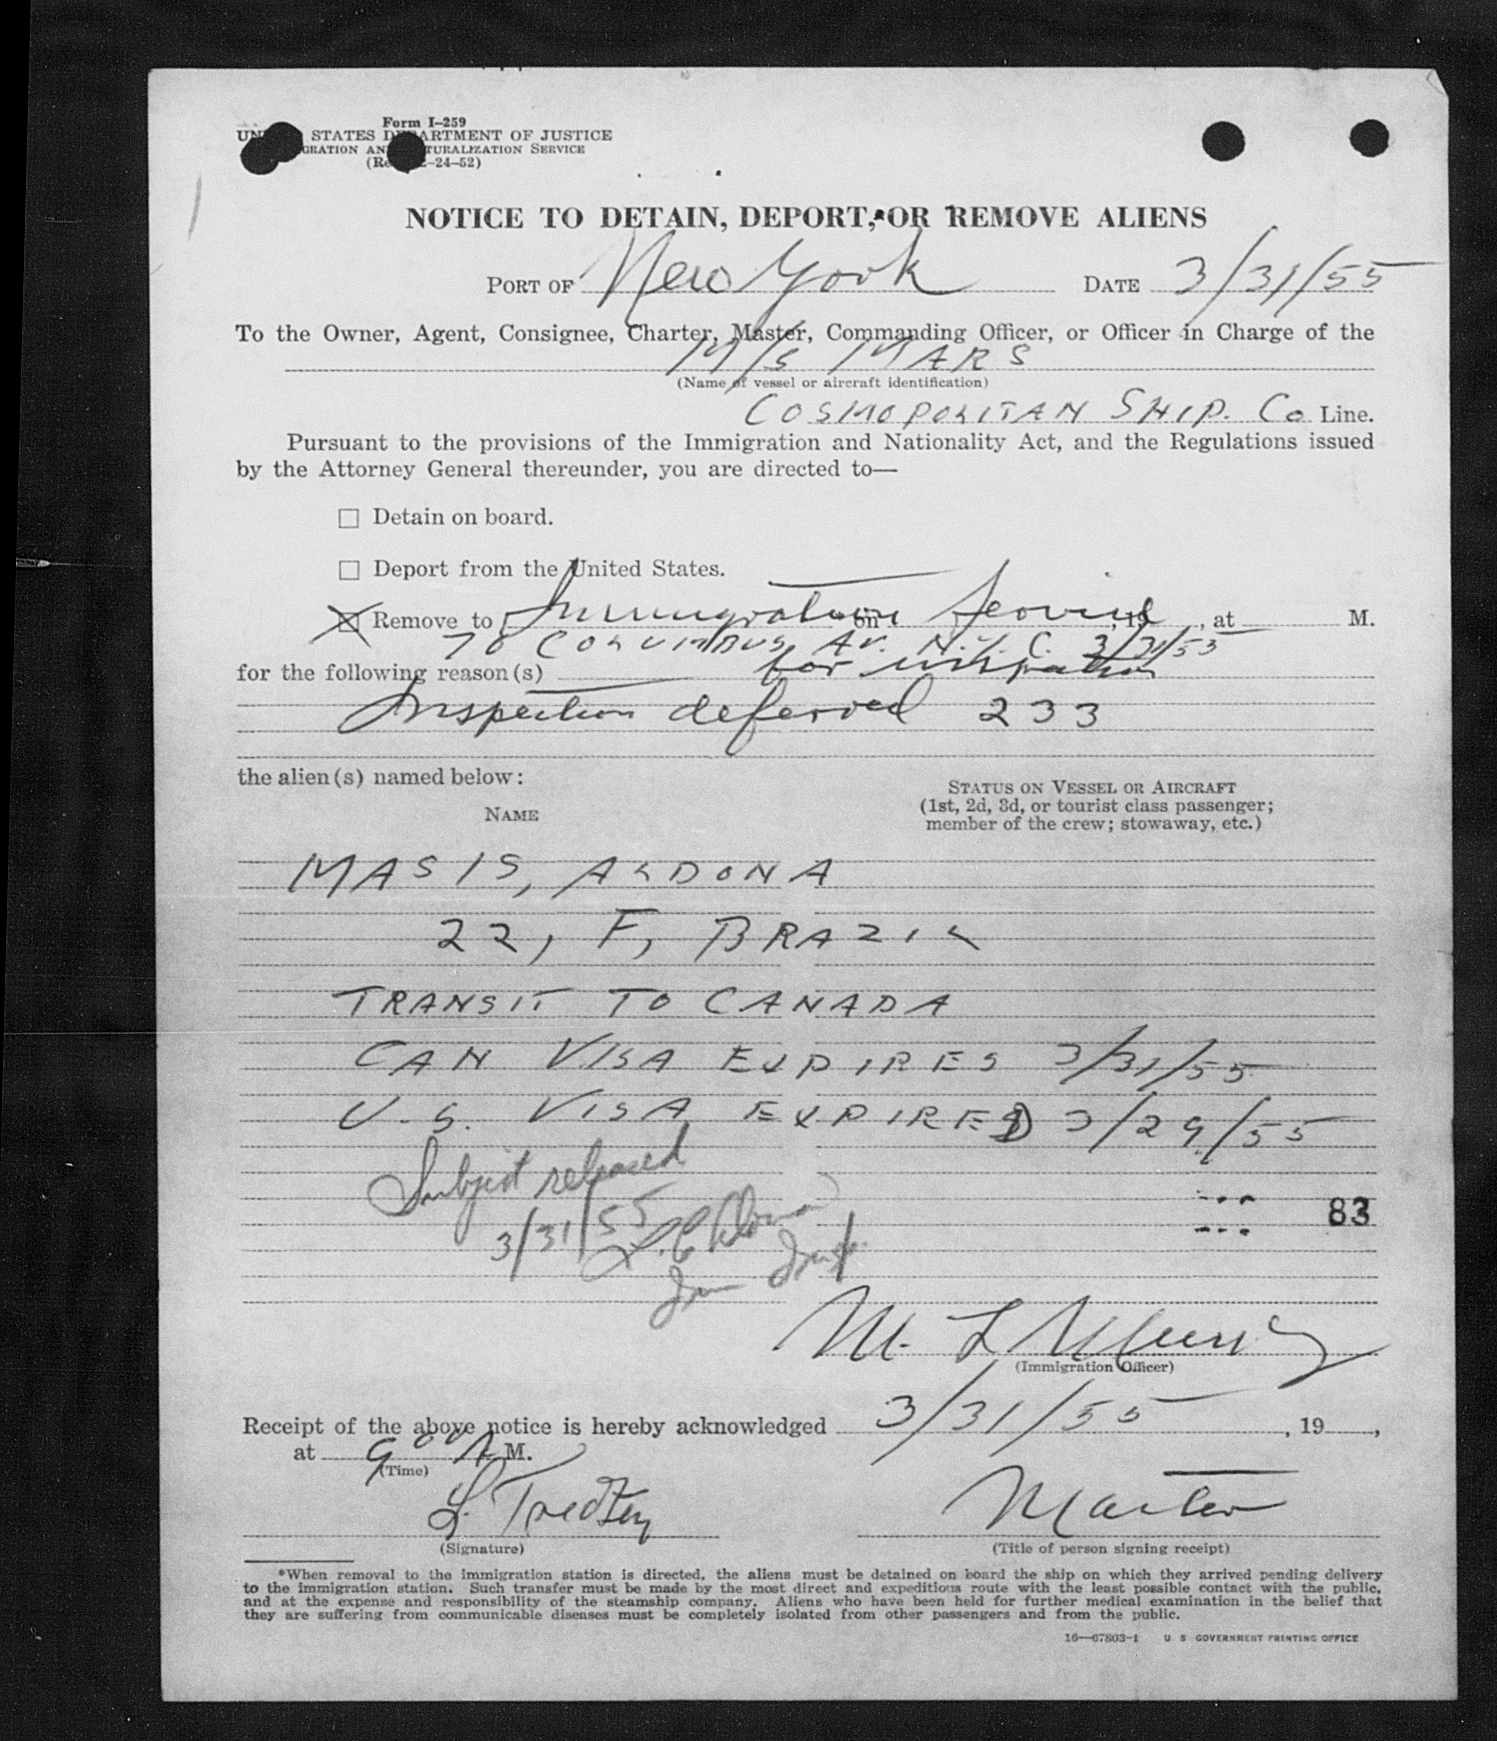 Form I-259
STATES DEPARTMENT OF JUSTICE
IMMIGRATION AND NATURALIZATION SERVICE
-24-52)
NOTICE TO DETAIN, DEPORT,* OR REMOVE ALIENS
PORT OF New York DATE 3/31/55
To the Owner, Agent, Consignee, Charter, Master, Commanding Officer, or Officer in Charge of the
M/S MARS
(Name of vessel or aircraft identification)
COSMOPOLITAN SHIP. Co Line.
Pursuant to the provisions of the Immigration and Nationality Act, and the Regulations issued
by the Attorney General thereunder, you are directed to—
☐ Detain on board.
☐ Deport from the United States.
☒ Remove to Immigration Service on , 19 , at M.
70 COLUMBUS AV. N.Y.C. 3/31/55
for the following reason(s) for inspection
Inspection deferred 233
the alien(s) named below:
NAME
STATUS ON VESSEL OR AIRCRAFT
(1st, 2d, 3d, or tourist class passenger;
member of the crew; stowaway, etc.)
MASIS, ALDONA
22, F, BRAZIL
TRANSIT TO CANADA
CAN VISA EXPIRES 3/31/55
U.S. VISA EXPIRED 3/29/55
Subject released
3/31/55
83
M. L. Murray
(Immigration Officer)
Receipt of the above notice is hereby acknowledged 3/31/55 , 19 ,
at 9 00 A M.
(Time)
L. Master
(Signature) (Title of person signing receipt)
*When removal to the immigration station is directed, the aliens must be detained on board the ship on which they arrived pending delivery
to the immigration station. Such transfer must be made by the most direct and expeditious route with the least possible contact with the public,
and at the expense and responsibility of the steamship company. Aliens who have been held for further medical examination in the belief that
they are suffering from communicable diseases must be completely isolated from other passengers and from the public.
16—67803-1 U S GOVERNMENT PRINTING OFFICE